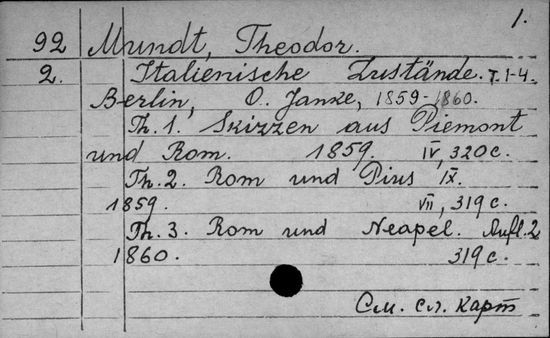 1.
92 Mundt, Theodor.
2. Italienische Zustände. T. 1-4.
Berlin, O. Janke, 1859-1860.
Th. 1. Skizzen aus Piemont
und Rom. 1859. IV, 320 с.
Th. 2. Rom und Pius IX.
1859. VII, 319 с.
Th. 3. Rom und Neapel. Aufl. 2
1860. 319 с.
См. сл. карт